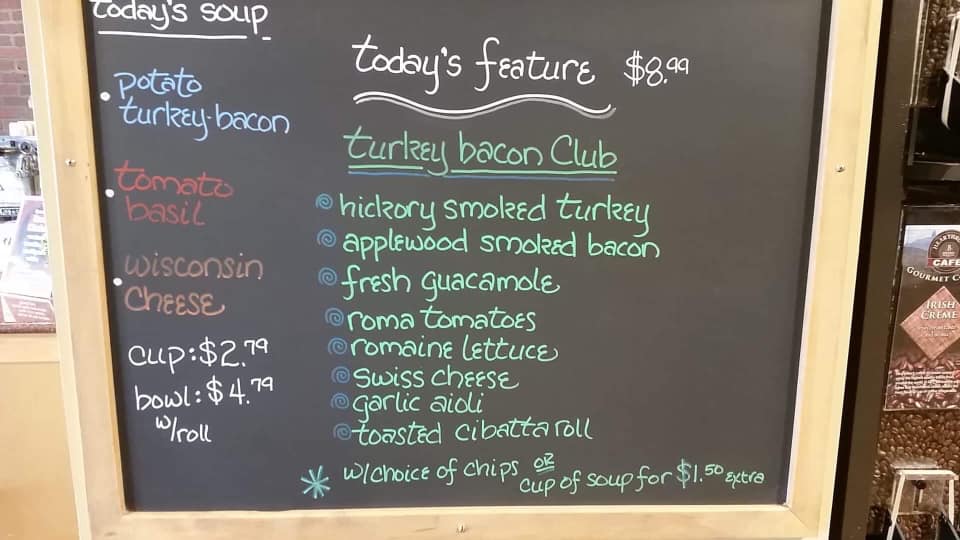 today's soup
• potato
turkey-bacon
• tomato
basil
• wisconsin
cheese
cup: $2.79
bowl: $4.79
w/roll
today's feature $8.99
turkey bacon Club
hickory smoked turkey
applewood smoked bacon
fresh guacamole
roma tomatoes
romaine lettuce
swiss cheese
garlic aioli
toasted cibatta roll
* w/choice of chips OR cup of soup for $1.50 extra
CAFE
GOURMET
IRISH
CREME